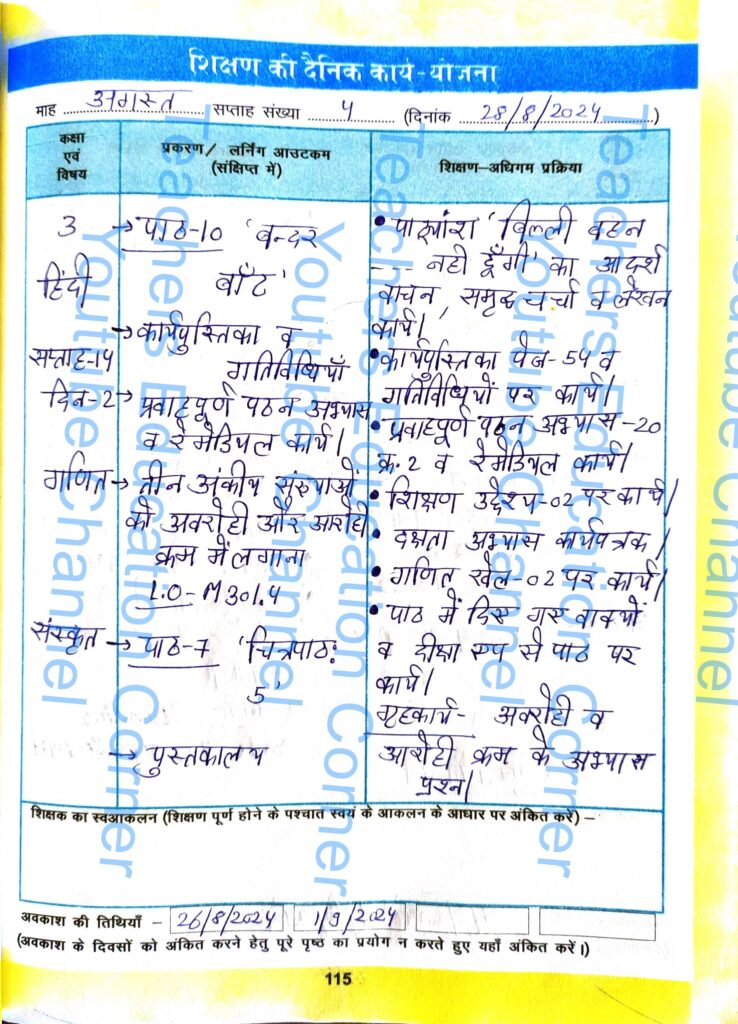 शिक्षण की दैनिक कार्य-योजना
माह अगस्त सप्ताह संख्या 4 (दिनांक 28/8/2024)
कक्षा
एवं
विषय
प्रकरण/ लर्निंग आउटकम
(संक्षिप्त में)
शिक्षण-अधिगम प्रक्रिया
3
हिंदी
सप्ताह-14
दिन-2
→ पाठ-10 'बन्दर
बाँट'
→ कार्यपुस्तिका व
गतिविधियाँ
→ प्रवाहपूर्ण पठन अभ्यास
व रेमेडियल कार्य।
• पाठ्यांश 'बिल्ली बहन
--- नही दूँगी' का आदर्श
वाचन, समृद्ध चर्चा व लेखन
कार्य।
• कार्यपुस्तिका पेज-54 व
गतिविधियों पर कार्य।
• प्रवाहपूर्ण पठन अभ्यास-20
क्र.2 व रेमेडियल कार्य।
गणित → तीन अंकीय संख्याओं
को अवरोही और आरोही
क्रम में लगाना
L.O-M301.4
• शिक्षण उद्देश्य-02 पर कार्य।
• दक्षता अभ्यास कार्यपत्रक।
• गणित खेल-02 पर कार्य।
संस्कृत → पाठ-7 'चित्रपाठः
5'
→ पुस्तकालय
• पाठ में दिए गए वाक्यों
व दीक्षा एप से पाठ पर
कार्य।
गृहकार्य- अवरोही व
आरोही क्रम के अभ्यास
प्रश्न।
शिक्षक का स्वआकलन (शिक्षण पूर्ण होने के पश्चात स्वयं के आकलन के आधार पर अंकित करें) –
अवकाश की तिथियाँ – 26/8/2024 1/9/2024
(अवकाश के दिवसों को अंकित करने हेतु पूरे पृष्ठ का प्रयोग न करते हुए यहाँ अंकित करें।)
115
Teachers Education Corner
Youtube Channel
Teachers Education Corner
Youtube Channel
Teachers Education Corner
Youtube Channel